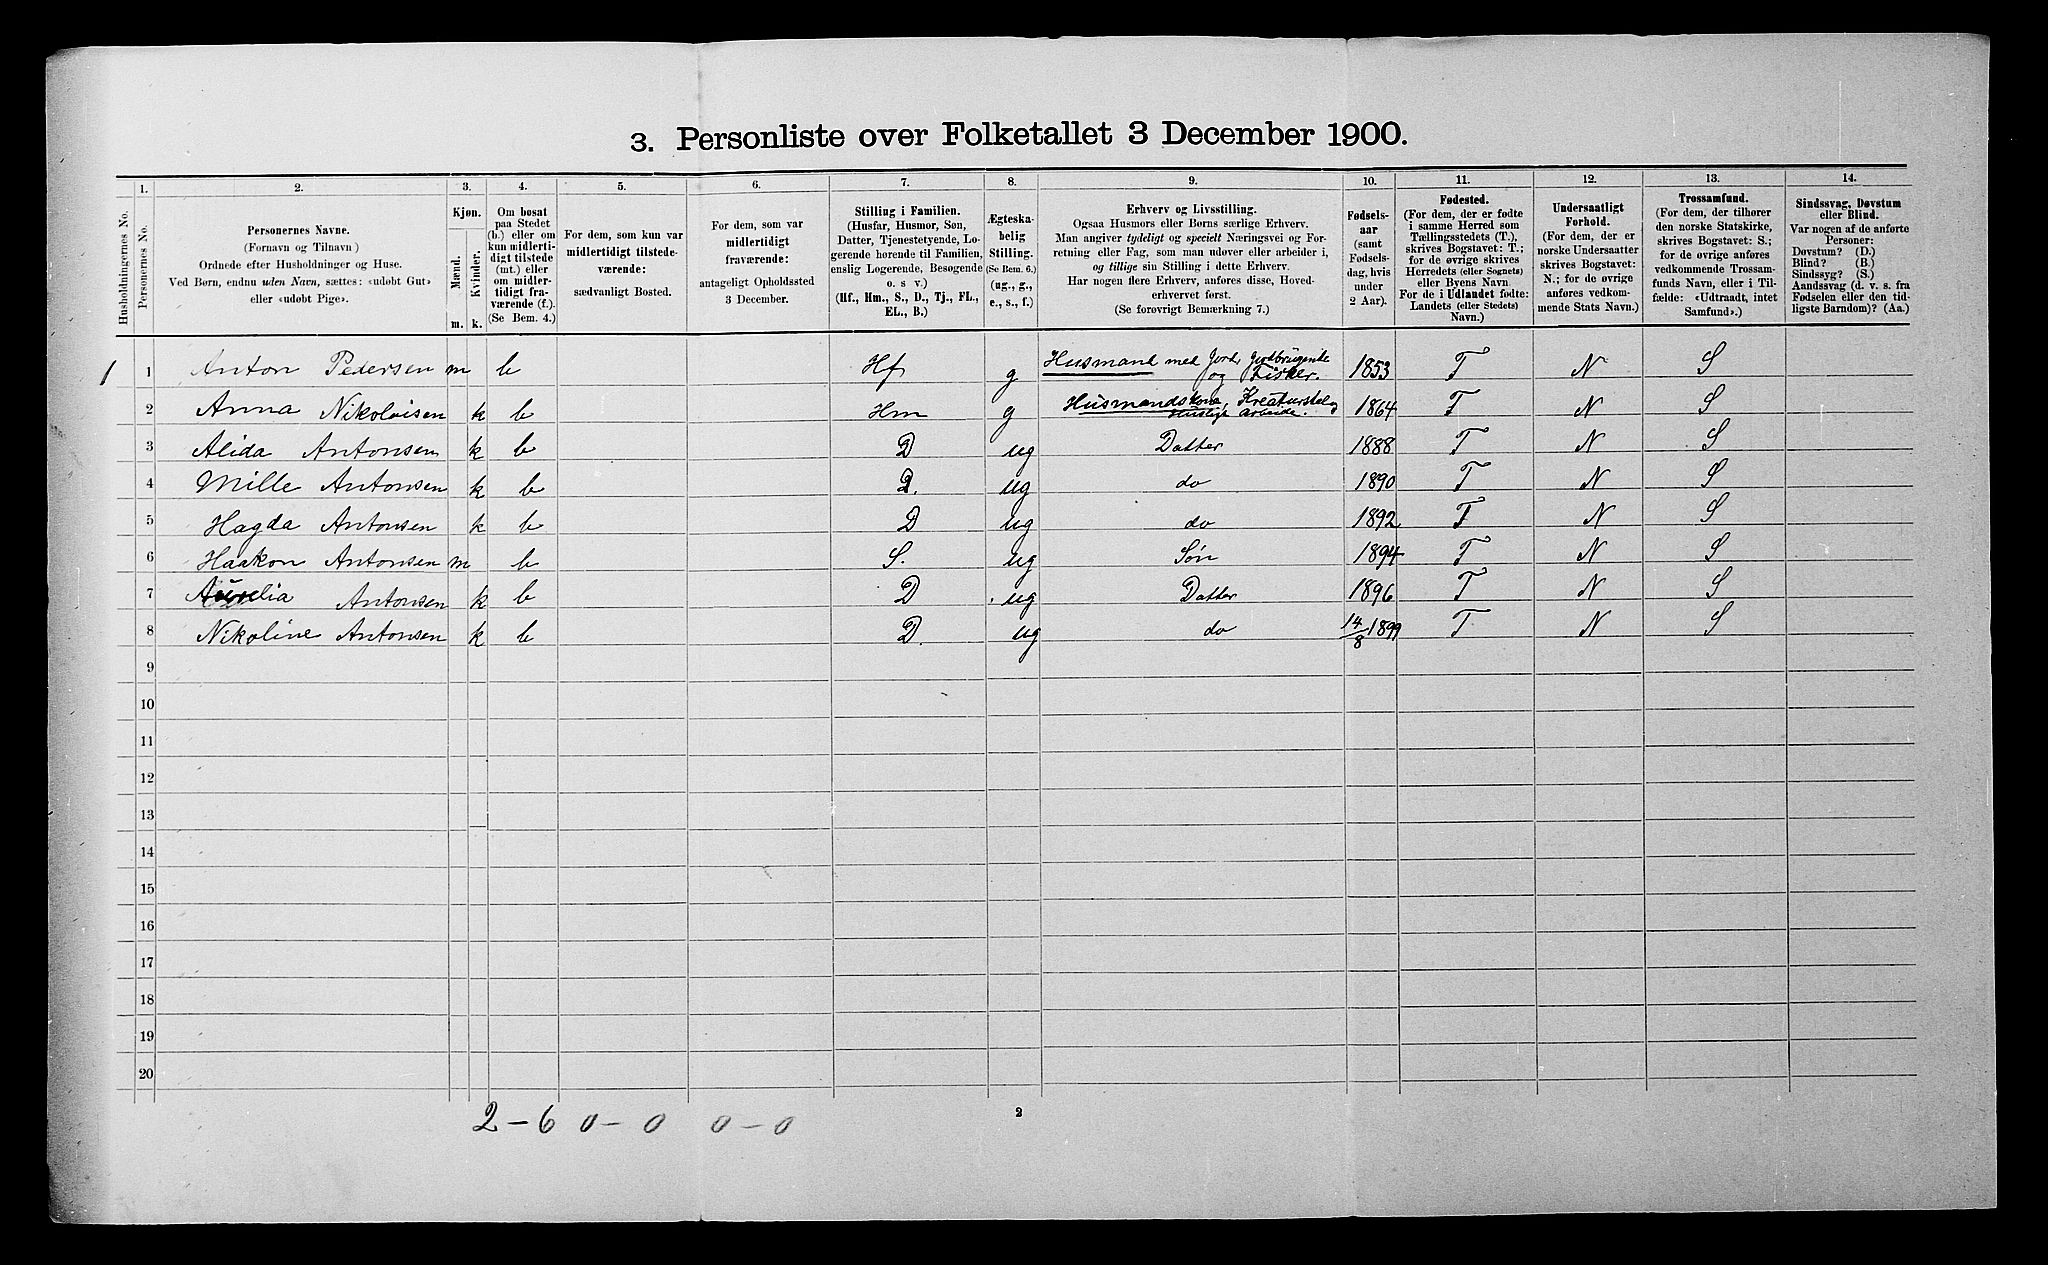 3. Personliste over Folketallet 3 December 1900.
Husholdningernes No.
1. Personernes No.
2. Personernes Navne.
(Fornavn og Tilnavn)
Ordnede efter Husholdninger og Huse.
Ved Børn, endnu uden Navn, sættes: «udøbt Gut»
eller «udøbt Pige».
3. Kjøn.
Mænd.
Kvinder.
m. k.
4. Om bosat
paa Stedet
(b.) eller om
kun midler-
tidigt tilstede
(mt.) eller
om midler-
tidigt fra-
værende (f.).
(Se Bem. 4.)
5. For dem, som kun var
midlertidigt tilstede-
værende:
sædvanligt Bosted.
6. For dem, som var
midlertidigt
fraværende:
antageligt Opholdssted
3 December.
7. Stilling i Familien.
(Husfar, Husmor, Søn,
Datter, Tjenestetyende, Lo-
gerende hørende til Familien,
enslig Logerende, Besøgende
o. s v.)
(Hf., Hm., S., D., Tj., FL.,
EL., B.)
8. Ægteska-
belig
Stilling.
(Se Bem. 6.)
(ug., g.,
e., s., f.)
9. Erhverv og Livsstilling.
Ogsaa Husmors eller Børns særlige Erhverv.
Man angiver tydeligt og specielt Næringsvei og For-
retning eller Fag, som man udøver eller arbeider i,
og tillige sin Stilling i dette Erhverv.
Har nogen flere Erhverv, anføres disse, Hoved-
erhvervet først.
(Se forøvrigt Bemærkning 7.)
10. Fødsels-
aar
(samt
Fødsels-
dag, hvis
under
2 Aar).
11. Fødested.
(For dem, der er fødte
i samme Herred som
Tællingsstedets (T.),
skrives Bogstavet: T.;
for de øvrige skrives
Herredets (eller Sognets)
eller Byens Navn.
For de i Udlandet fødte:
Landets (eller Stedets)
Navn.)
12. Undersaatligt
Forhold.
(For dem, der er
norske Undersaatter
skrives Bogstavet:
N.; for de øvrige
anføres vedkom-
mende Stats Navn.)
13. Trossamfund.
(For dem, der tilhører
den norske Statskirke,
skrives Bogstavet: S.;
for de øvrige anføres
vedkommende Trossam-
funds Navn, eller i Til-
fælde: «Udtraadt, intet
Samfund».)
14. Sindssvag, Døvstum
eller Blind.
Var nogen af de anførte
Personer:
Døvstum? (D.)
Blind? (B.)
Sindssyg? (S.)
Aandssvag (d. v. s. fra
Fødselen eller den tid-
ligste Barndom)? (Aa.)
1 1 Anton Pedersen m b Hf g Husmand med Jord, Jordbrugende og Fisker. 1853 T N S
2 Anna Nikolaisen k b Hm g Husmandskone, Kreaturstel og Huslige arbeide. 1864 T N S
3 Alida Antonsen k b D ug Datter 1888 T N S
4 Mille Antonsen k b D. ug do 1890 T N S
5 Hagda Antonsen k b D ug do 1892 T N S
6 Haakon Antonsen m b S. ug Søn 1894 T N S
7 Aurelia Antonsen k b D ug Datter 1896 T N S
8 Nikoline Antonsen k b D. ug do 14/8 1899 T N S
9
10
11
12
13
14
15
16
17
18
19
20
2 - 6 0 - 0 0 - 0
2